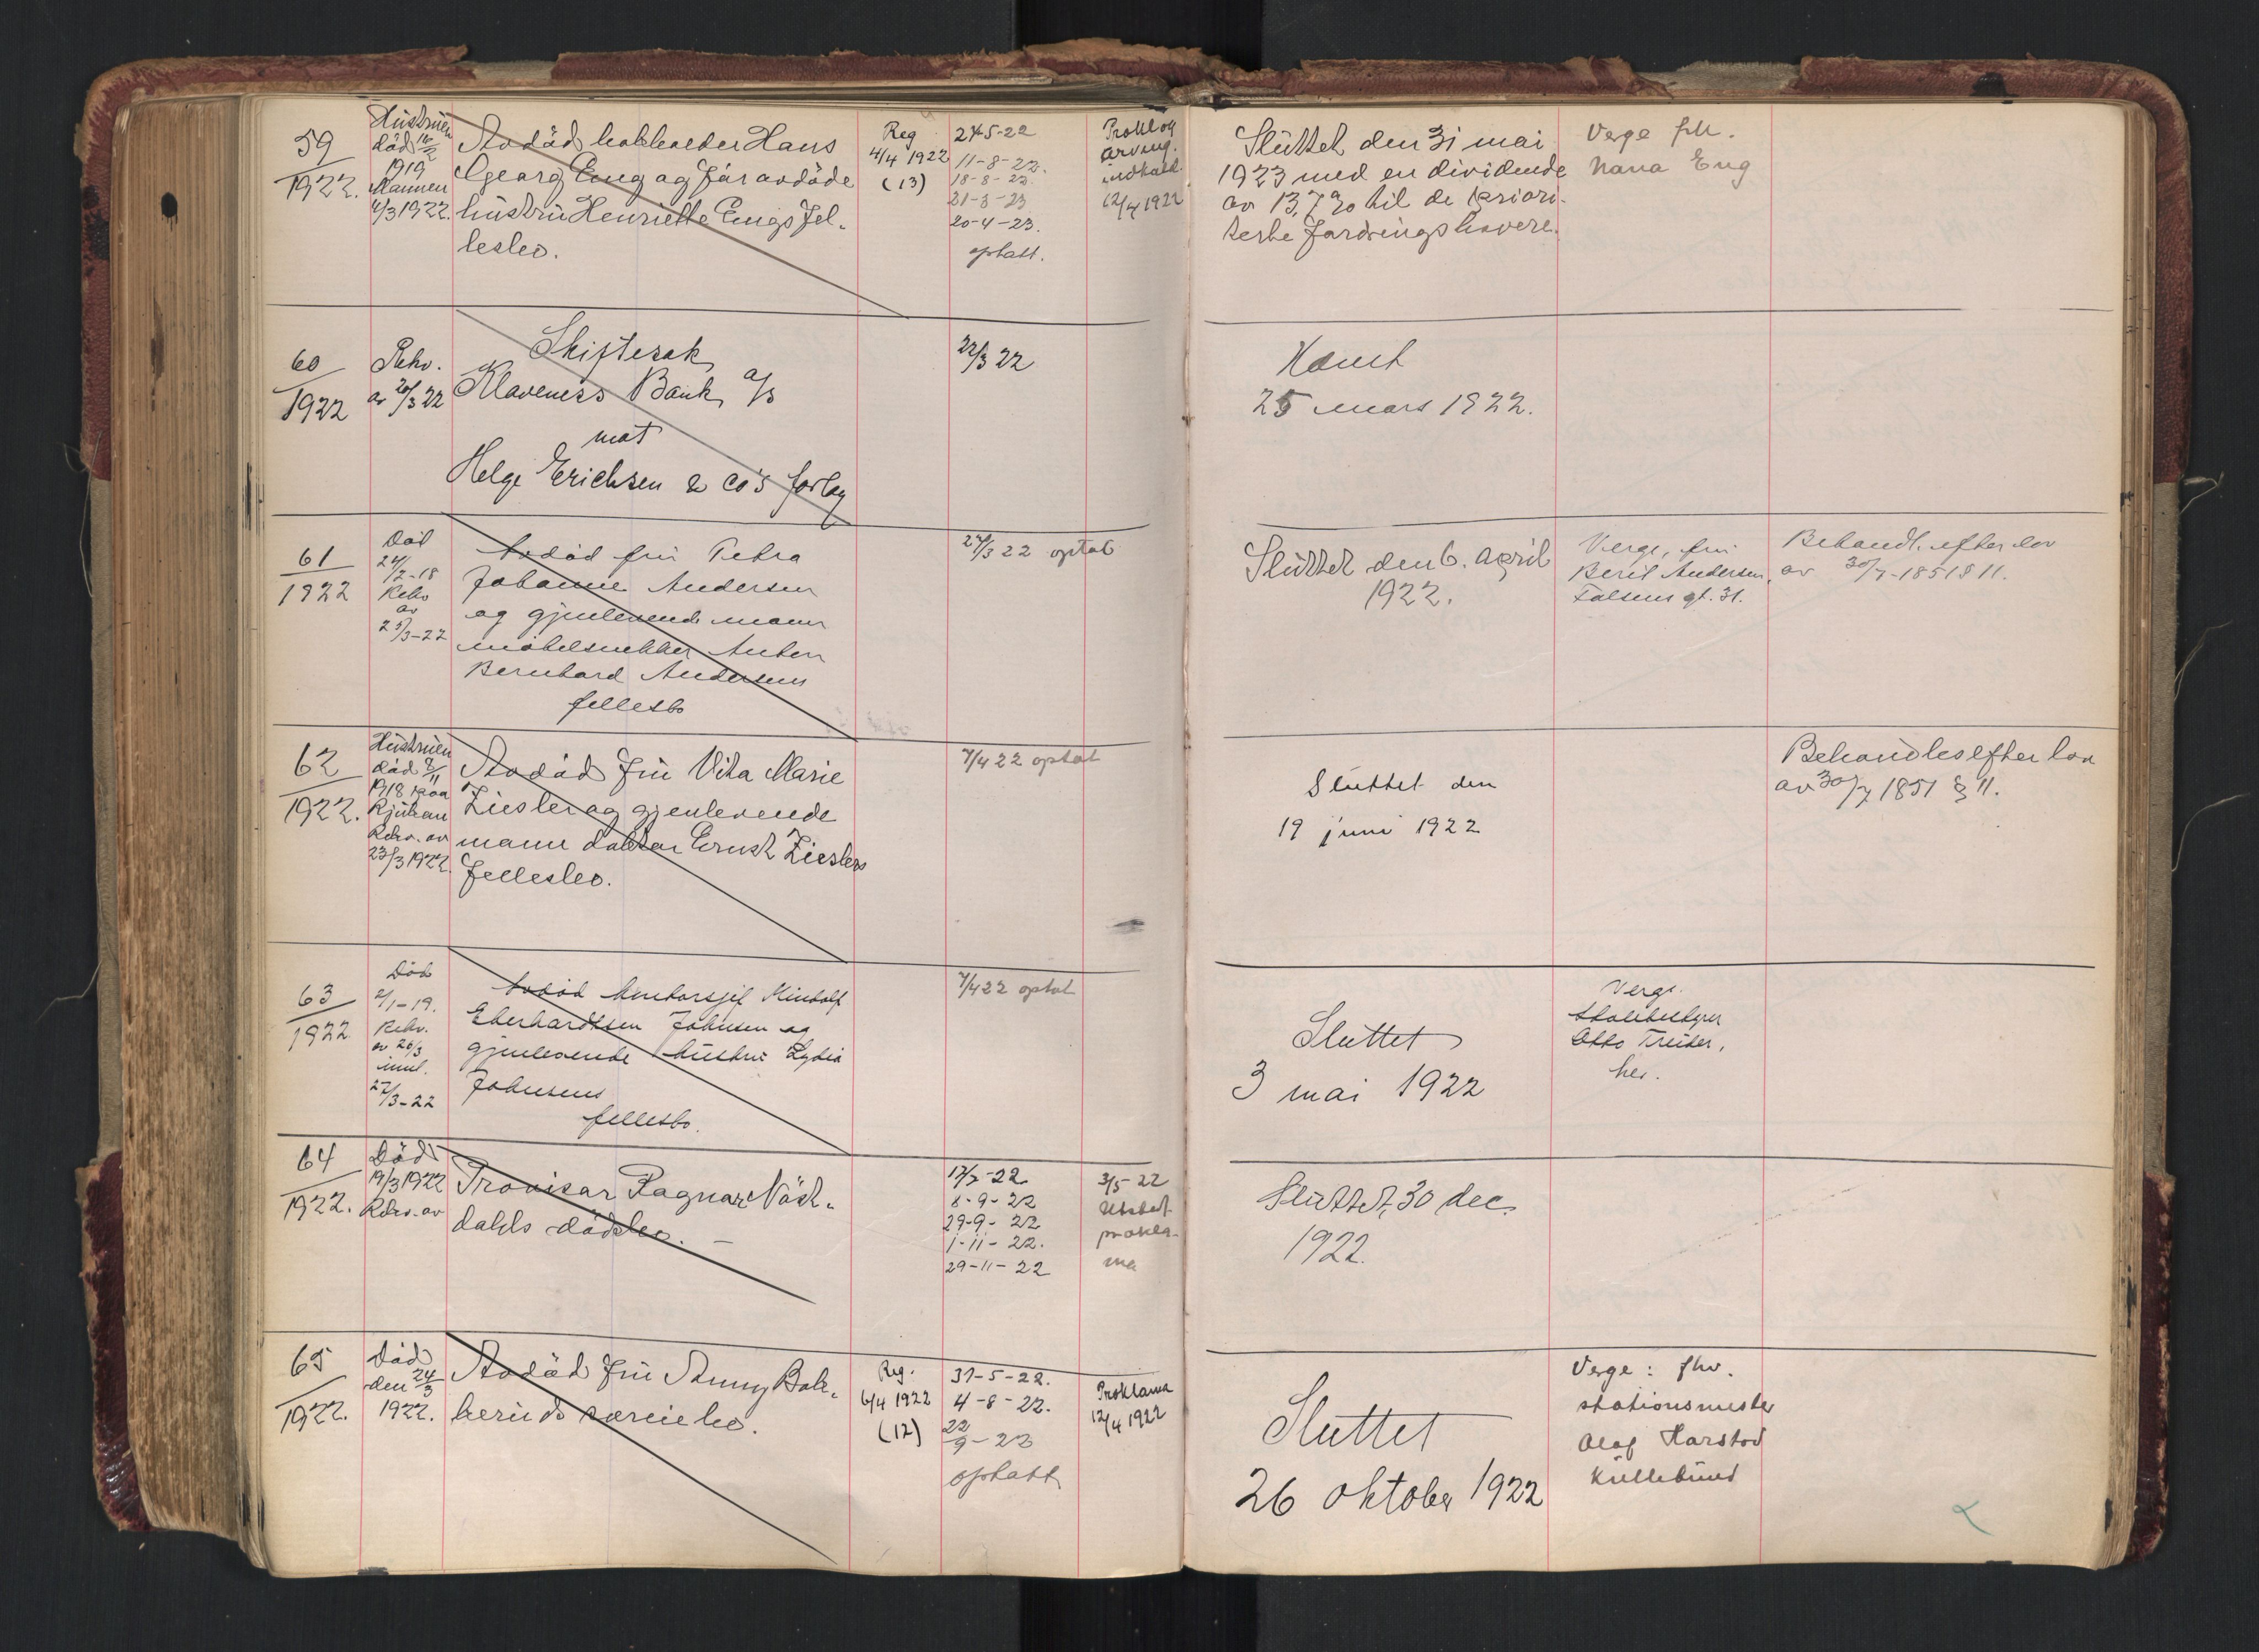 59
1922.
Hustruen
död 16/2
1919
Mannen
4/3 1922.
Avdöd Hans
Georg Eng og før avdöde
hustru Henriette Engs fel-
lesbo.
Reg
4/4 1922
(13)
24-5-22
11-8-22.
18-8-22.
21-3-23
20-4-23.
optatt.
Proklog
arving.
indkald.
12/4 1922
Sluttet den 31 mai
1923 med en dividende
av 13,7 % til de priori-
terte fordringshavere.
Verge frk.
Nana Eng
60
1922
Rekv.
av 20/3 22
Skiftesak
Klaveness Bank a/s
mot
Helge Erichsen & Co's forlag
22/3 22
Hævet
25 mars 1922.
61
1922
Död
24/2-18
Rekv
av
25/3-22
Avdöd fru Petra
Johanne Andersen
og gjenlevende mann
möbelsnekker Anton
Bernhard Andersens
fellesbo
27/3 22 optat
Sluttet den 6. april
1922.
Verge, fru
Beril Andersen,
Falsens gt. 31.
Behandl. efter lov
av 30/7-1851 § 11.
62
1922.
Hustruen
död 2/11
1918 paa
Rjukan
Rekv. av
23/3 1922.
Avdöd fru Vita Marie
Ziesler og gjenlevende
mann doktor Ernst Zieslers
fellesbo.
7/4 22 optat
Sluttet den
19 juni 1922
Behandles efter lov
av 30/7 1851 § 11.
63
1922
Död
2/1-19.
Rekv.
av 26/3
innl.
27/3-22
Avdöd kontorsjef
Eberhardtsen Johnsen og
gjenlevende hustru Lydia
Johnsens
fellesbo.
7/4 22 optat
Sluttet
3 mai 1922
Verge.
Skolebestyrer
Otto Treider,
her.
64
1922.
Död
19/3 1922
Rekv. av
Provisor Ragnar Nöst-
dahls dödsbo. —
17/7-22
8-9-22
29-9-22
1-11-22.
29-11-22
3/5-22
Utstedt
prokla-
ma
Sluttet, 30 dec.
1922.
65
1922.
Död
den 24/3
1922.
Avdöd fru Anny Bak-
keruds særeiebo.
Reg.
6/4 1922
(12)
31-5-22.
4-8-22.
22/9-22
optatt
Proklama
12/4 1922
Sluttet
26 oktober 1922
Verge: fhv.
stationsmester
Olaf Harstod
Kullebund